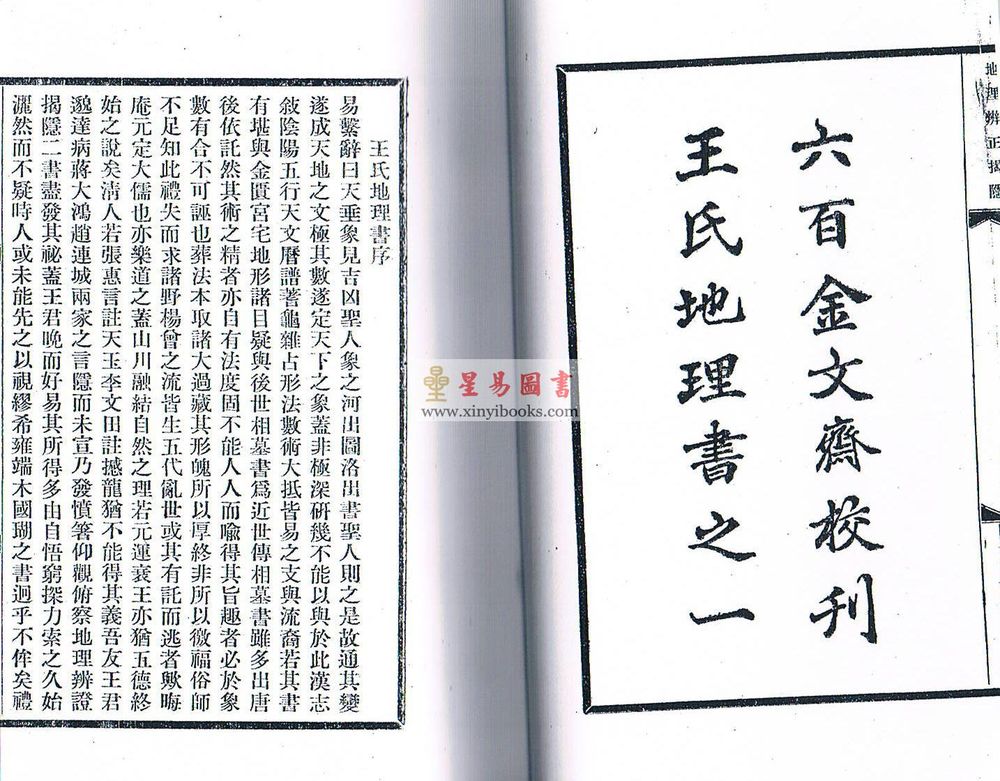 地理辨正揭隱
六百金文齋校刊
王氏地理書之一
王氏地理書序
易繫辭曰天垂象見吉凶聖人象之河出圖洛出書聖人則之是故通其變
遂成天地之文極其數遂定天下之象蓋非極深硏幾不能以與於此漢志
敍陰陽五行天文曆譜蓍龜雜占形法數術大抵皆易之支與流裔若其書
有堪輿金匱宮宅地形諸目疑與後世相墓書爲近世傳相墓書雖多出唐
後依託然其術之精者亦自有法度固不能人人而喩得其旨趣者必於象
數有合不可誣也葬法本取諸大過藏其形魄所以厚終非所以徼福俗師
不足知此禮失而求諸野楊曾之流皆生五代亂世或其有託而逃者歟晦
庵元定大儒也亦樂道之蓋山川融結自然之理若元運衰王亦猶五德終
始之說矣清人若張惠言註天玉李文田註撼龍猶不能得其義吾友王君
邈達病蔣大鴻趙連城兩家之言隱而未宣乃發憤箸仰觀俯察地理辨證
揭隱二書盡發其祕蓋王君晚而好易其所得多由自悟窮探力索之久始
灑然而不疑時人或未能先之以視繆希雍端木國瑚之書迥乎不侔矣禮
星易圖書
www.xinyibooks.com